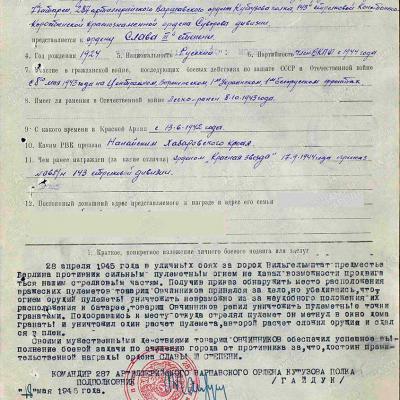 батареи 287 Артиллерийского Варшавского ордена Кутузова полка 143 стрелковой Конотопско-
Коростенской краснознаменной ордена Суворова дивизии.
представляется к ордену "Слава II" степени.
4. Год рождения 1924 5. Национальность Русский 6. Партийность член ВКП/б/ с 1944 года
7. Участие в гражданской войне, последующих боевых действиях по защите СССР и Отечественной войне
с 8 мая 1943 года на Центральном, Воронежском, 1 м Украинском, 1 м Белорусском фронтах
8. Имеет ли ранения в Отечественной войне Легко-ранен 8.10.1943 года.
9. С какого времени в Красной Армии с 13-6-1942 года.
10. Каким РВК призван Нанайским Хабаровского края.
11. Чем ранее награжден (за какие отличия) орденом "Красная звезда" 17.9.1944 года приказ
143 стрелковой дивизии.
12. Постоянный домашний адрес представляемого к награде и адрес его семьи
1. Краткое, конкретное изложение личного боевого подвига или заслуг
28 апреля 1945 года в уличных боях за город Вильгельмштат предместье
Берлина противник сильным пулеметным огнем не давал возможности продвига
ться нашим стрелковым частям. Получив приказ обнаружить место расположения
вражеских пулеметов товарищ Овчинников принялся за дело, но убедившись, что
огнем орудий пулемет уничтожить невозможно из за неудобного положения их
расположения к батарее, товарищ Овчинников решил уничтожить пулеметные точки
гранатами. Похоровшись к месту откуда стрелял пулемет он метнул в окно дома
гранаты и уничтожил один расчет пулемета, а второй расчет сложил оружие и сдал
ся в плен.
Своими мужественными действиями товарищ ОВЧИННИКОВ обеспечил успешное вы
полнение боевой задачи по очищению города от противника за что, достоин прави-
тельственной награды ордена СЛАВЫ II СТЕПЕНИ.
КОМАНДИР 287 АРТИЛЛЕРИЙСКОГО ВАРШАВСКОГО ОРДЕНА КУТУЗОВА ПОЛКА
ПОДПОЛКОВНИК / ГАЙДУК /
мая 1945 года